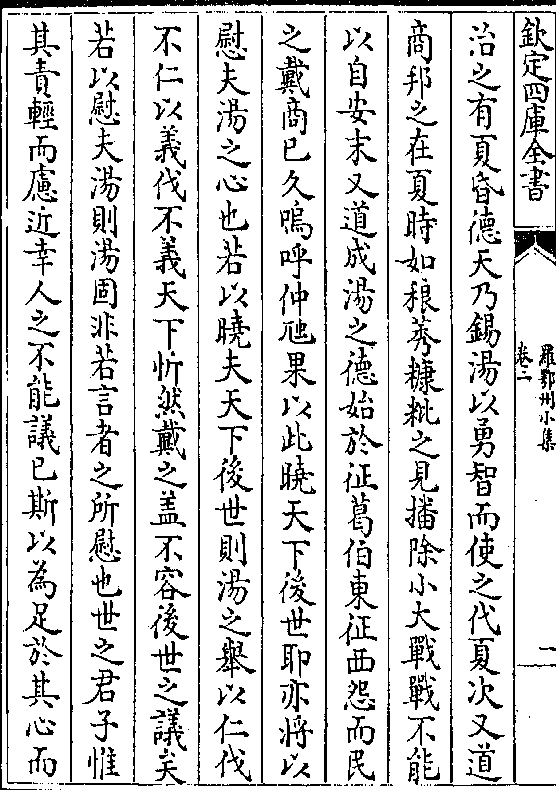 欽定四庫全書
羅鄂州小集
卷二
一
治之有夏昏德天乃錫湯以勇智而使之代夏次又道
商邦之在夏時如稂莠糠粃之見播除小大戰戰不能
以自安末又道成湯之德始於征葛伯東征西怨而民
之戴商已久嗚呼仲虺果以此曉天下後世耶亦將以
慰夫湯之心也若以曉夫天下後世則湯之舉以仁伐
不仁以義伐不義天下忻然戴之盖不容後世之議矣
若以慰夫湯則湯固非若言者之所慰也世之君子惟
其責輕而慮近幸人之不能議已斯以為足於其心而